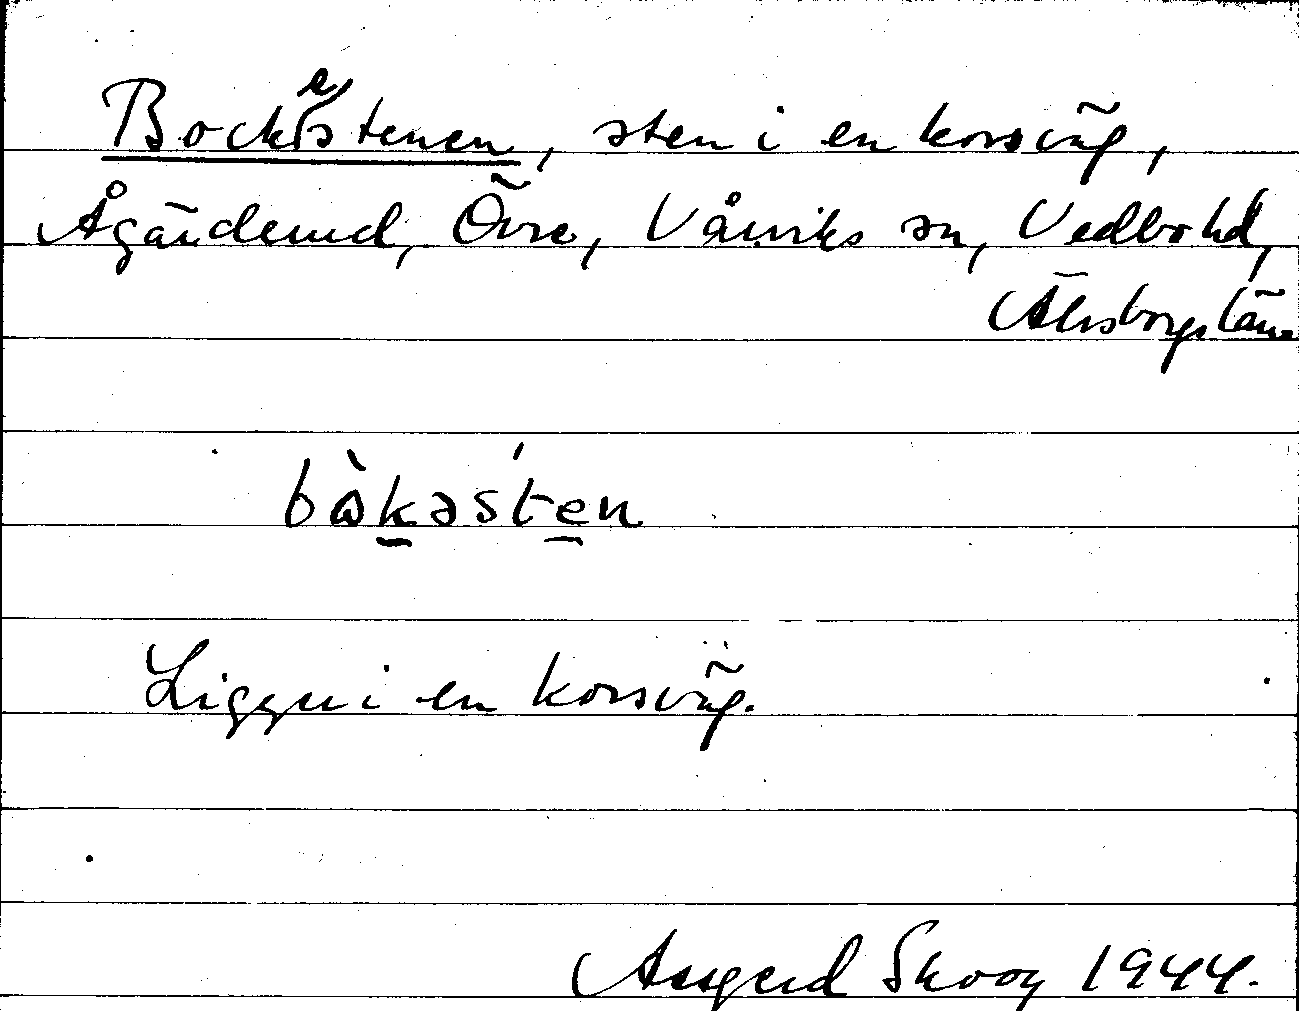 Bockestenen, sten i en korsväg,
Ågärdenud, Övre, Vårviks sn, Vedbo hd,
Älvsborgs län
bὼkəsten
Ligger i en korsväg.
Assgerd Skoog 1944.